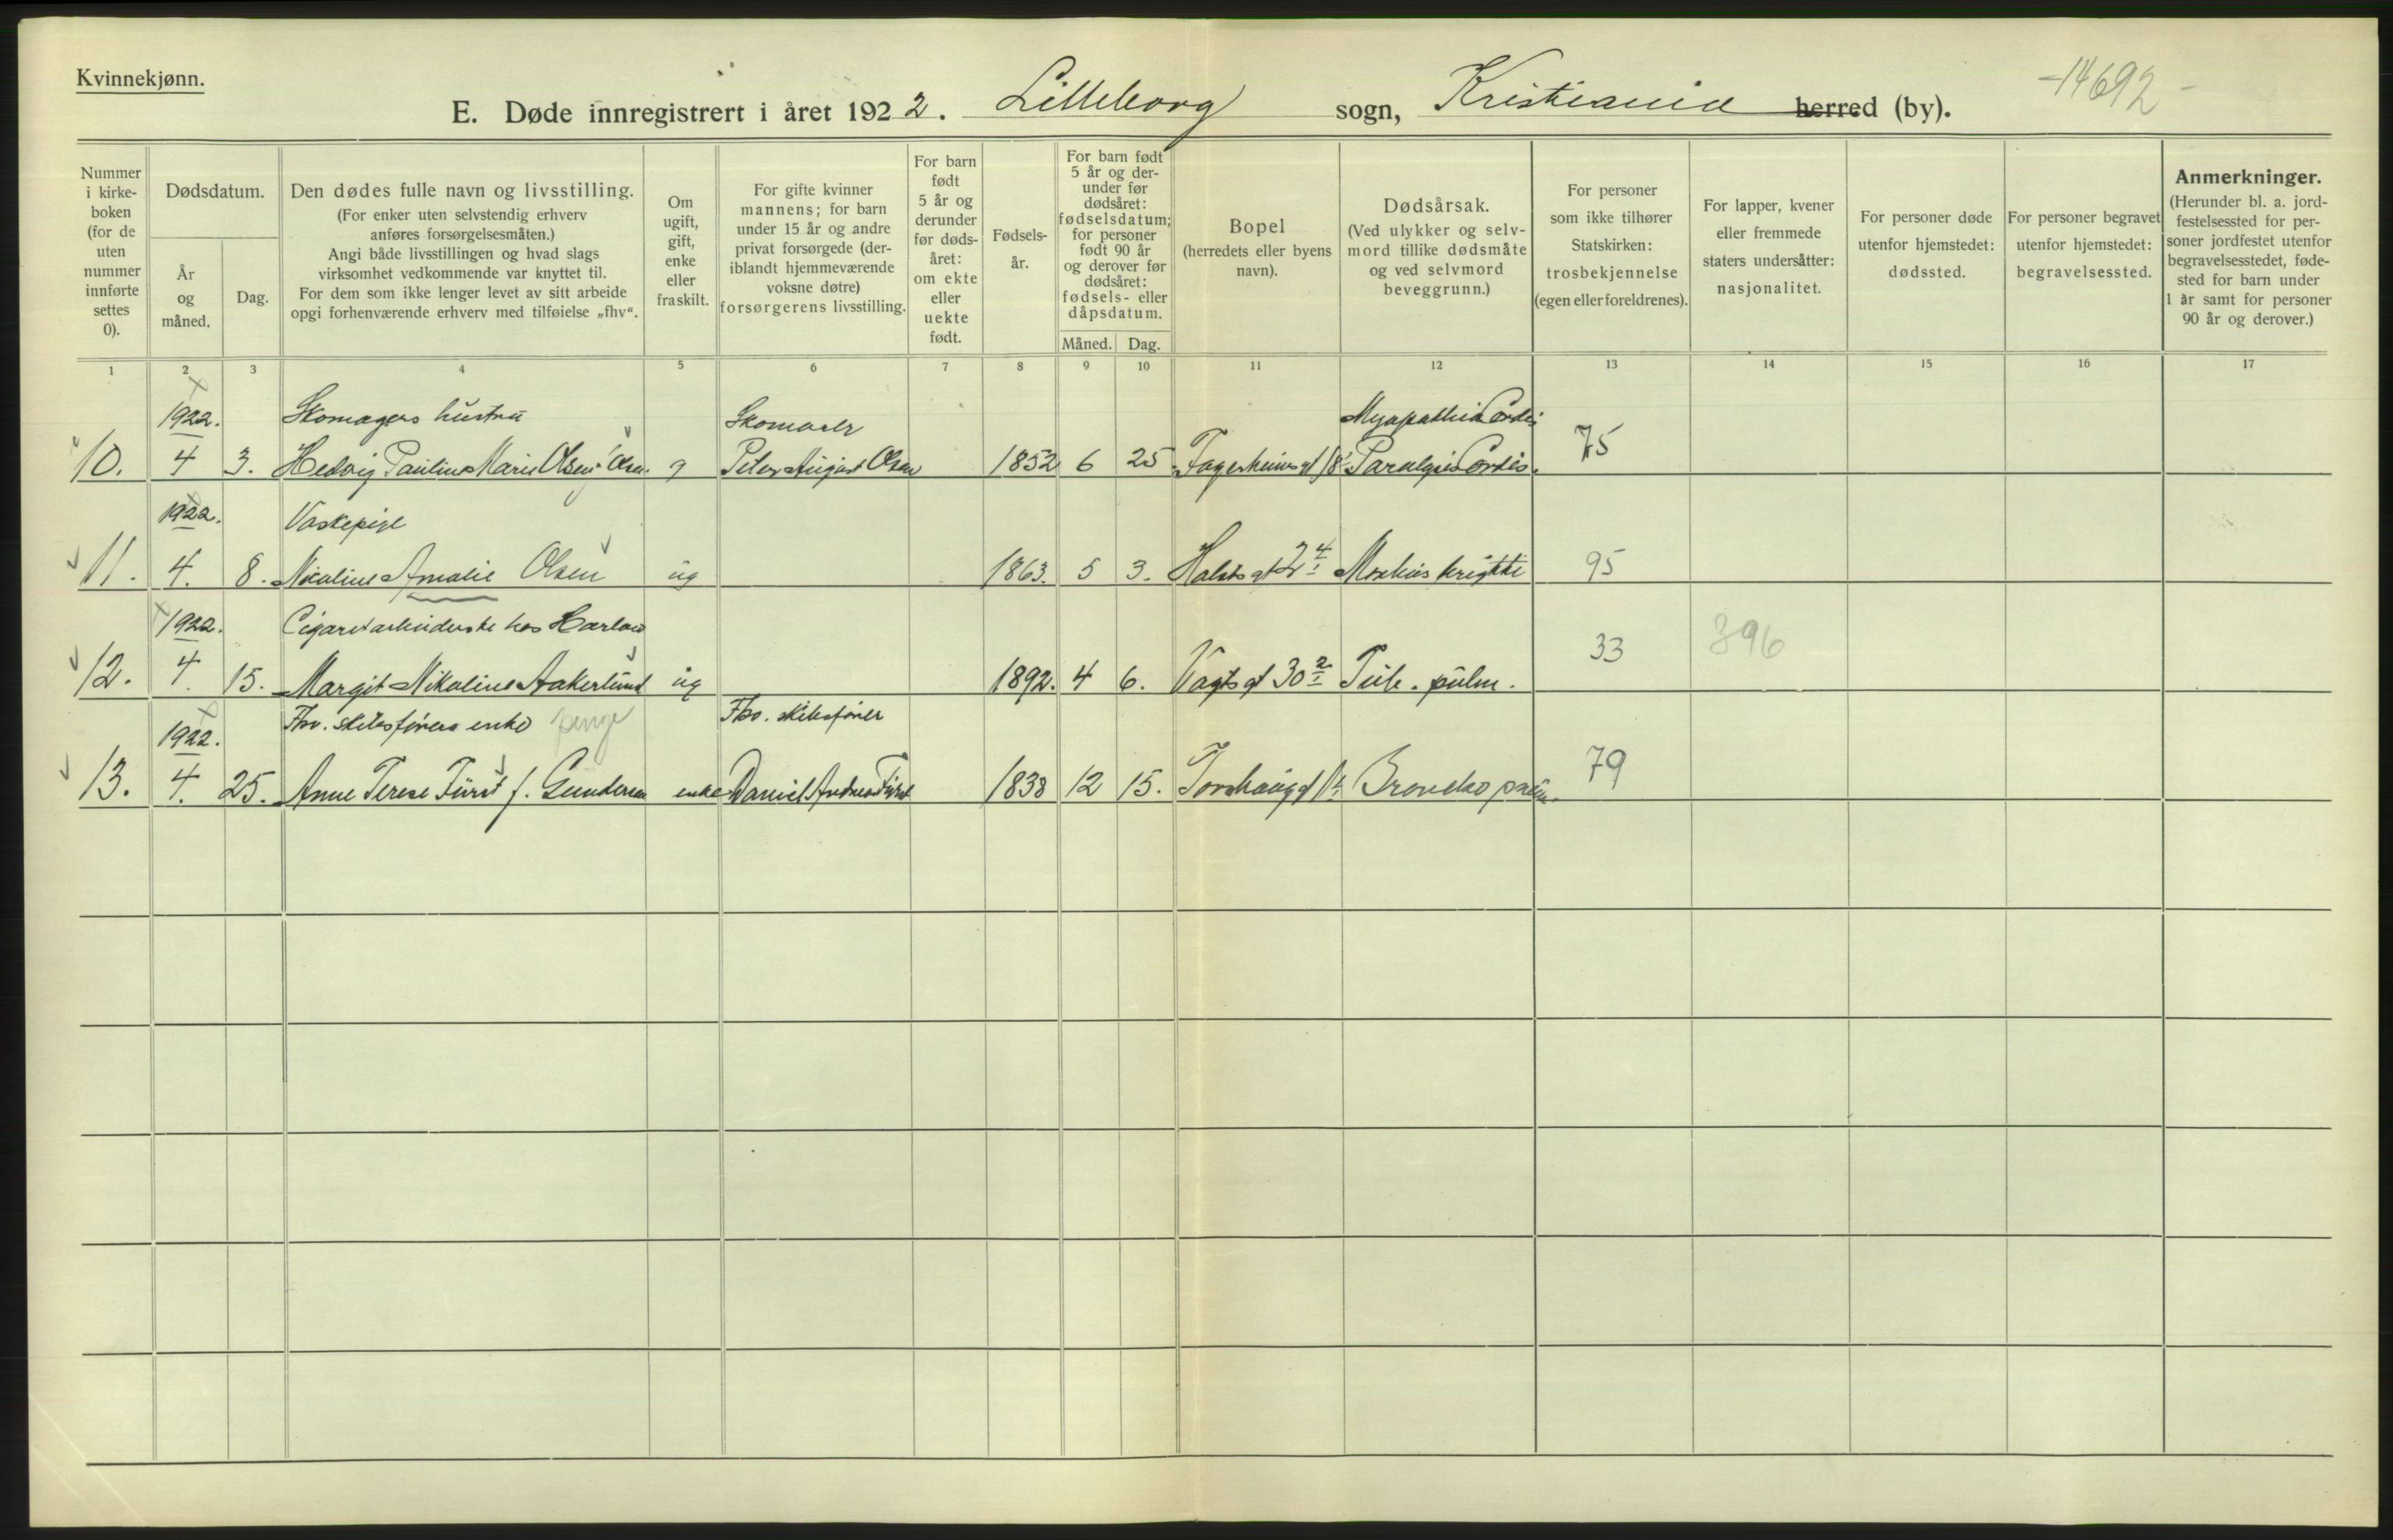 Kvinnekjønn.
-14692-
E. Døde innregistrert i året 1922. Lilleborg sogn, Kristiania herred (by).
Nummer i kirke- boken (for de uten nummer innførte settes 0).
Dødsdatum.
År og måned.
Dag.
Den dødes fulle navn og livsstilling.
(For enker uten selvstendig erhverv anføres forsørgelsesmåten.)
Angi både livsstillingen og hvad slags virksomhet vedkommende var knyttet til.
For dem som ikke lenger levet av sitt arbeide opgi forhenværende erhverv med tilføielse „fhv“.
Om ugift, gift, enke eller fraskilt.
For gifte kvinner mannens; for barn under 15 år og andre privat forsørgede (der- iblandt hjemmeværende voksne døtre) forsørgerens livsstilling.
For barn født 5 år og derunder før døds- året: om ekte eller uekte født.
Fødsels- år.
For barn født 5 år og der- under før dødsåret: fødselsdatum; for personer født 90 år og derover før dødsåret: fødsels- eller dåpsdatum.
Måned. Dag.
Bopel (herredets eller byens navn).
Dødsårsak. (Ved ulykker og selv- mord tillike dødsmåte og ved selvmord beveggrunn.)
For personer som ikke tilhører Statskirken: trosbekjennelse (egen eller foreldrenes).
For lapper, kvener eller fremmede staters undersåtter: nasjonalitet.
For personer døde utenfor hjemstedet: dødssted.
For personer begravet utenfor hjemstedet: begravelsessted.
Anmerkninger. (Herunder bl. a. jord- festelsessted for per- soner jordfestet utenfor begravelsesstedet, føde- sted for barn under 1 år samt for personer 90 år og derover.)
1 2 3 4 5 6 7 8 9 10 11 12 13 14 15 16 17
1922. Skomagers hustru Skomager Myopathia Cordis
10. 4 3. Hedvig Pauline Marie Olsen f. Olsen. g Peter August Olsen 1852 6 25 Fagerheimsgt 18 Paralysis Cordis. 75
1922. Vaskepige
11. 4. 8. Nicoline Amalie Olsen ug 1863. 5 3. 95
1922. Cigaretarbeiderske hos Harlow
12. 4. 15. Margit Nikoline Aakerlund ug 1892. 4 6. Vogtsgt 30 Tub. pulm. 33 396
1922. Fhv. skibsførers enke penge Fhv. skibsfører
13. 4. 25. Anne Terese Fürst f. Gundersen enke Daniel Andreas Fürst 1838 12 15. Torshauggt 79